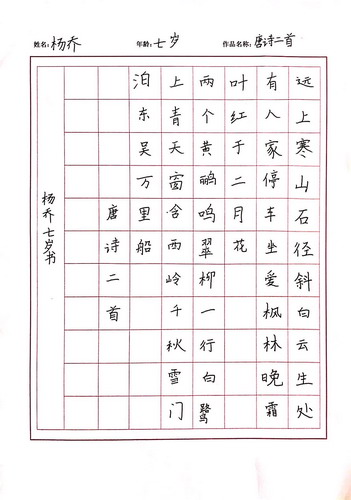 姓名:杨乔 年龄:七岁 作品名称:唐诗二首
远上寒山石径斜白云生处
有人家停车坐爱枫林晚霜
叶红于二月花
两个黄鹂鸣翠柳一行白鹭
上青天窗含西岭千秋雪门
泊东吴万里船
唐诗二首
杨乔七岁书